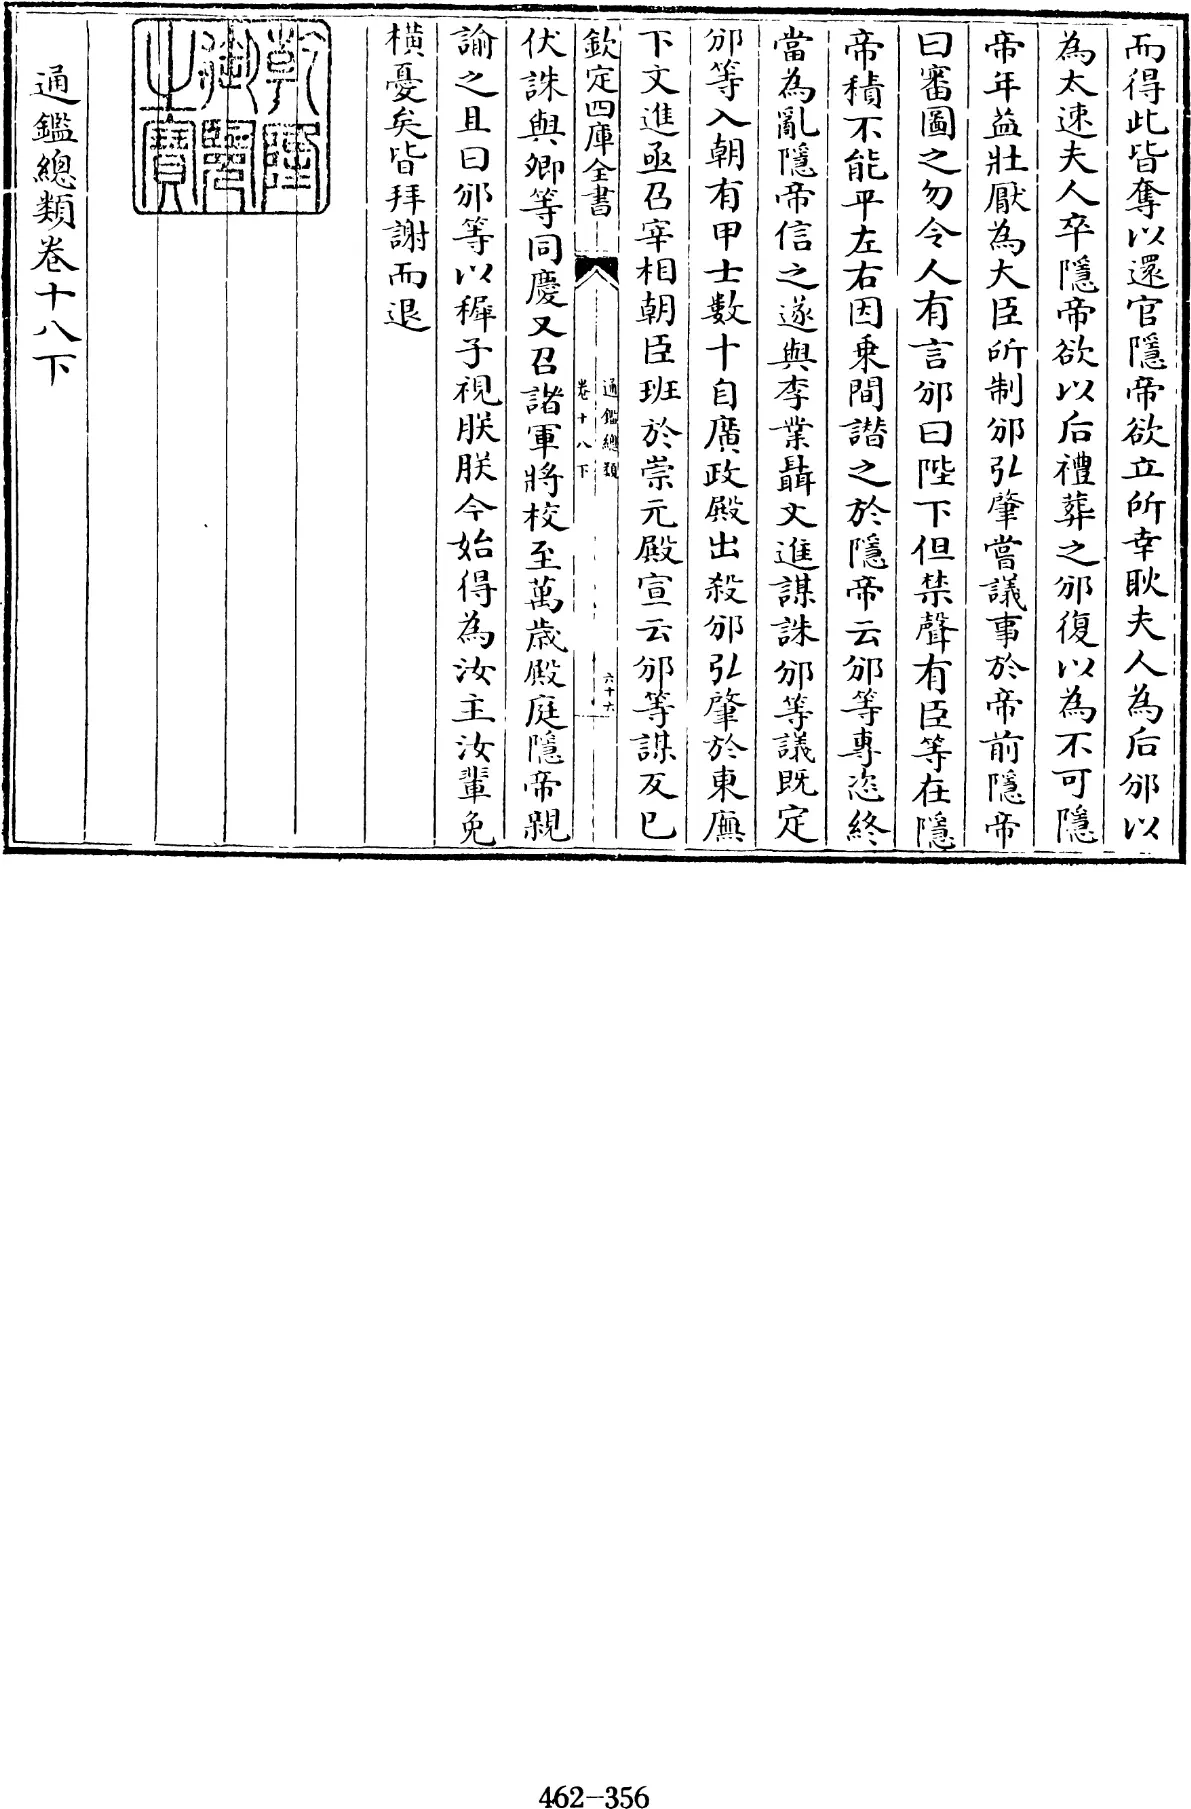 而得此皆奪以還官隱帝欲立所幸耿夫人為后邠以
為太速夫人卒隱帝欲以后禮葬之邠復以為不可隱
帝年益壯厭為大臣所制邠弘肇嘗議事於帝前隱帝
曰審圖之勿令人有言邠曰陛下但禁聲有臣等在隱
帝積不能平左右因乗間譖之於隱帝云邠等專恣終
當為亂隱帝信之遂與李業聶文進謀誅邠等議既定
邠等入朝有甲士數十自廣政殿出殺邠弘肇於東廡
下文進亟召宰相朝臣班於崇元殿宣云邠等謀反已
欽定四庫全書
通鑑總類
卷十八下
六十六
伏誅與卿等同慶又召諸軍將校至萬歲殿庭隱帝親
諭之且曰邠等以穉子視朕朕今始得為汝主汝輩免
橫憂矣皆拜謝而退
乾隆
御覽
之寶
通鑑總類卷十八下
462-356